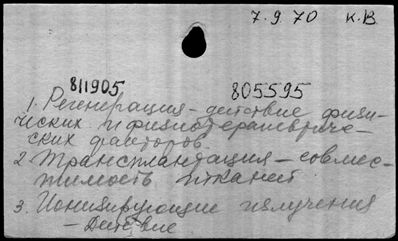 7.9.70 К.В
811905 805595
1. Регенерация – действие физи-
ческих и физиотерапевтиче-
ских факторов.
2. Трансплантация – совмес-
тимость тканей
3. Ионизирующие излучения
– Действие